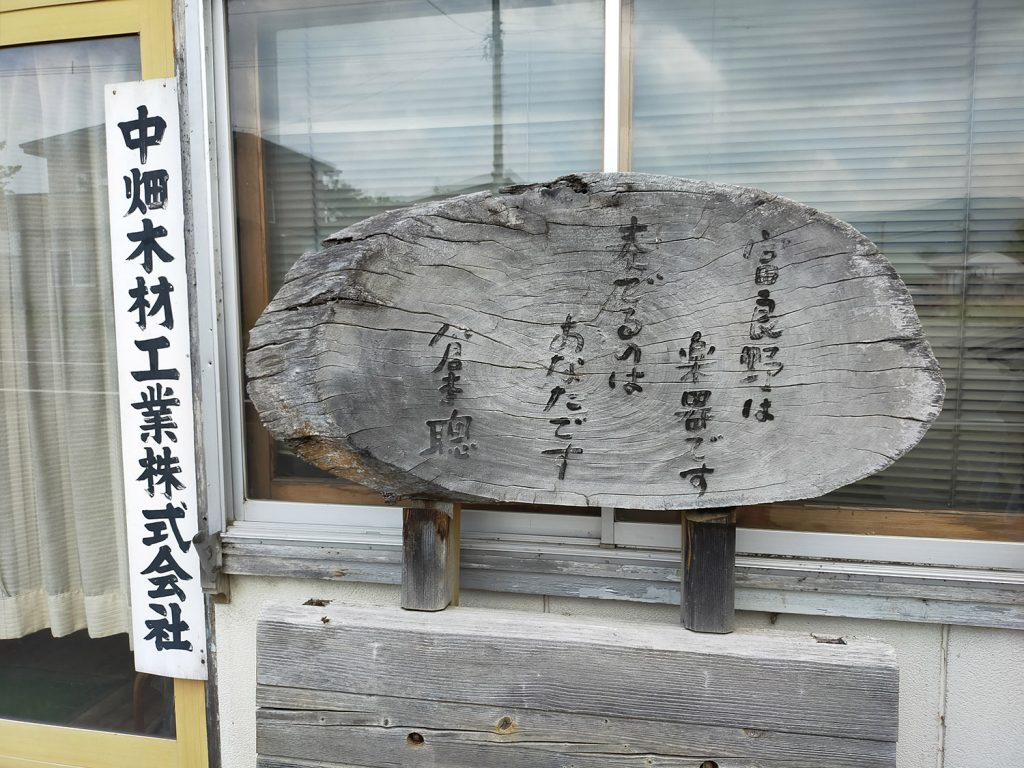 中畑木材工業株式会社
富良野は
楽器です
奏でるのは
あなたです
倉本聰